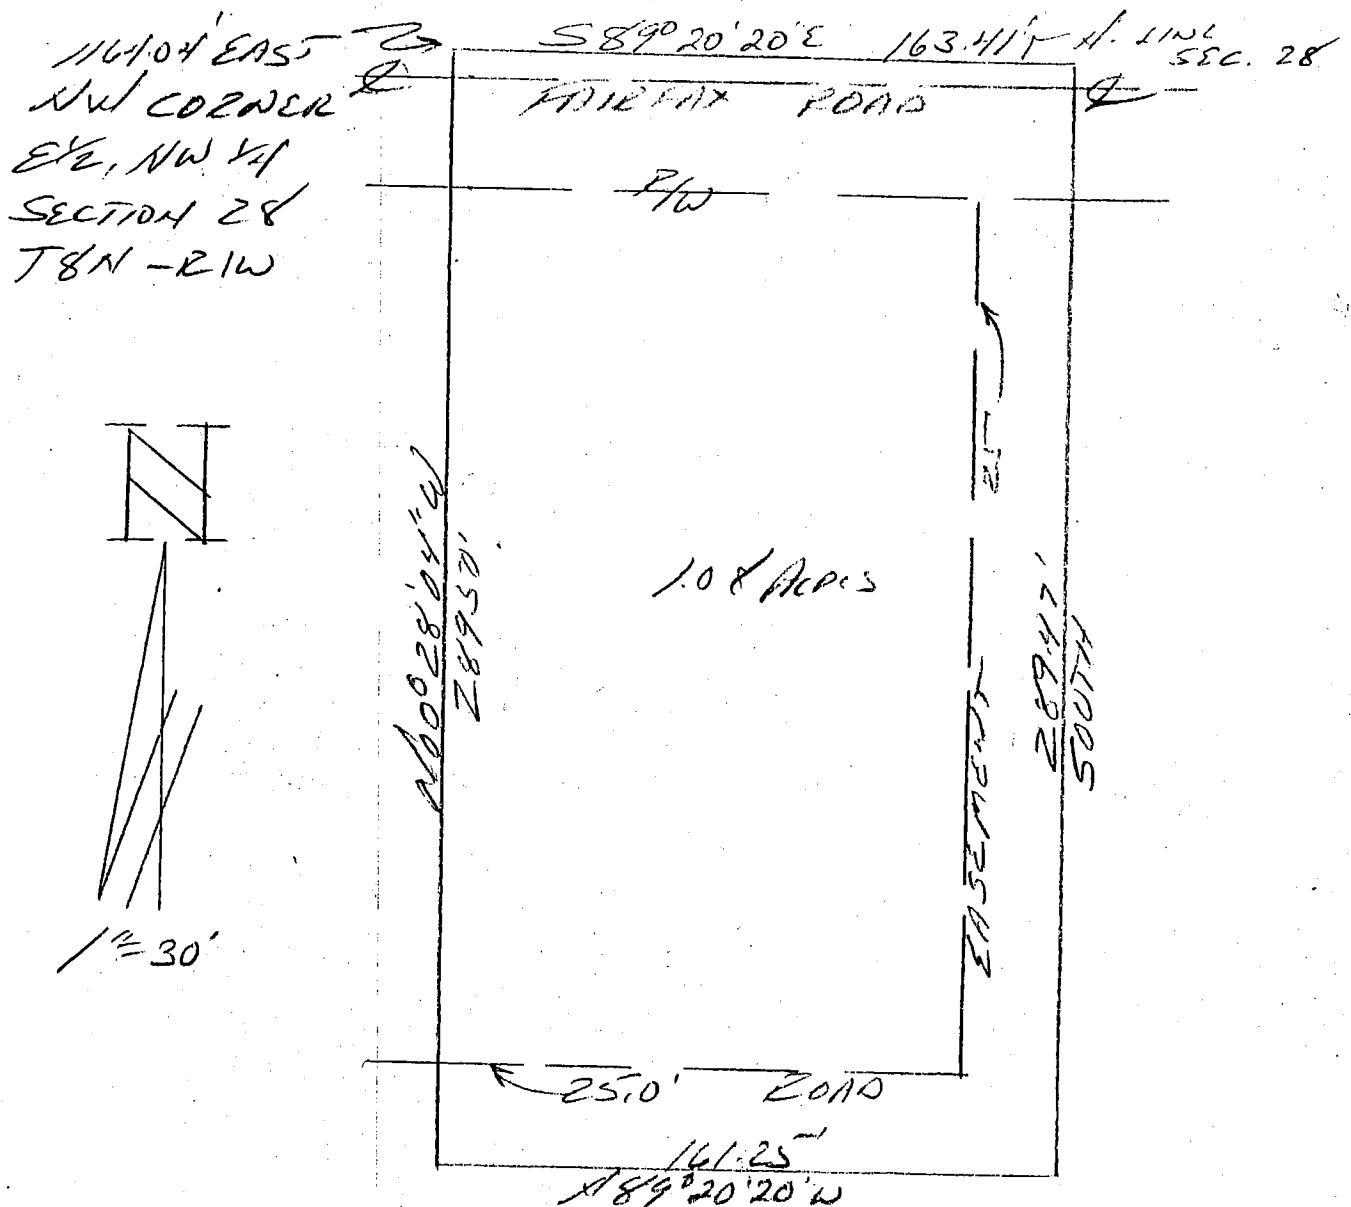 1164.04' EAST
NW CORNER
E½, NW ¼
SECTION 28
T8N - R1W
S 89° 20' 20" E 163.41' N. LINE
SEC. 28
℄ FAIRFAX ROAD ℄
R/W
25
N
1" = 30'
N00° 28' 04" W
289.50'
1.08 ACRES
289.47'
SOUTH
EASEMENT
25.0' ROAD
161.25'
N 89° 20' 20" W